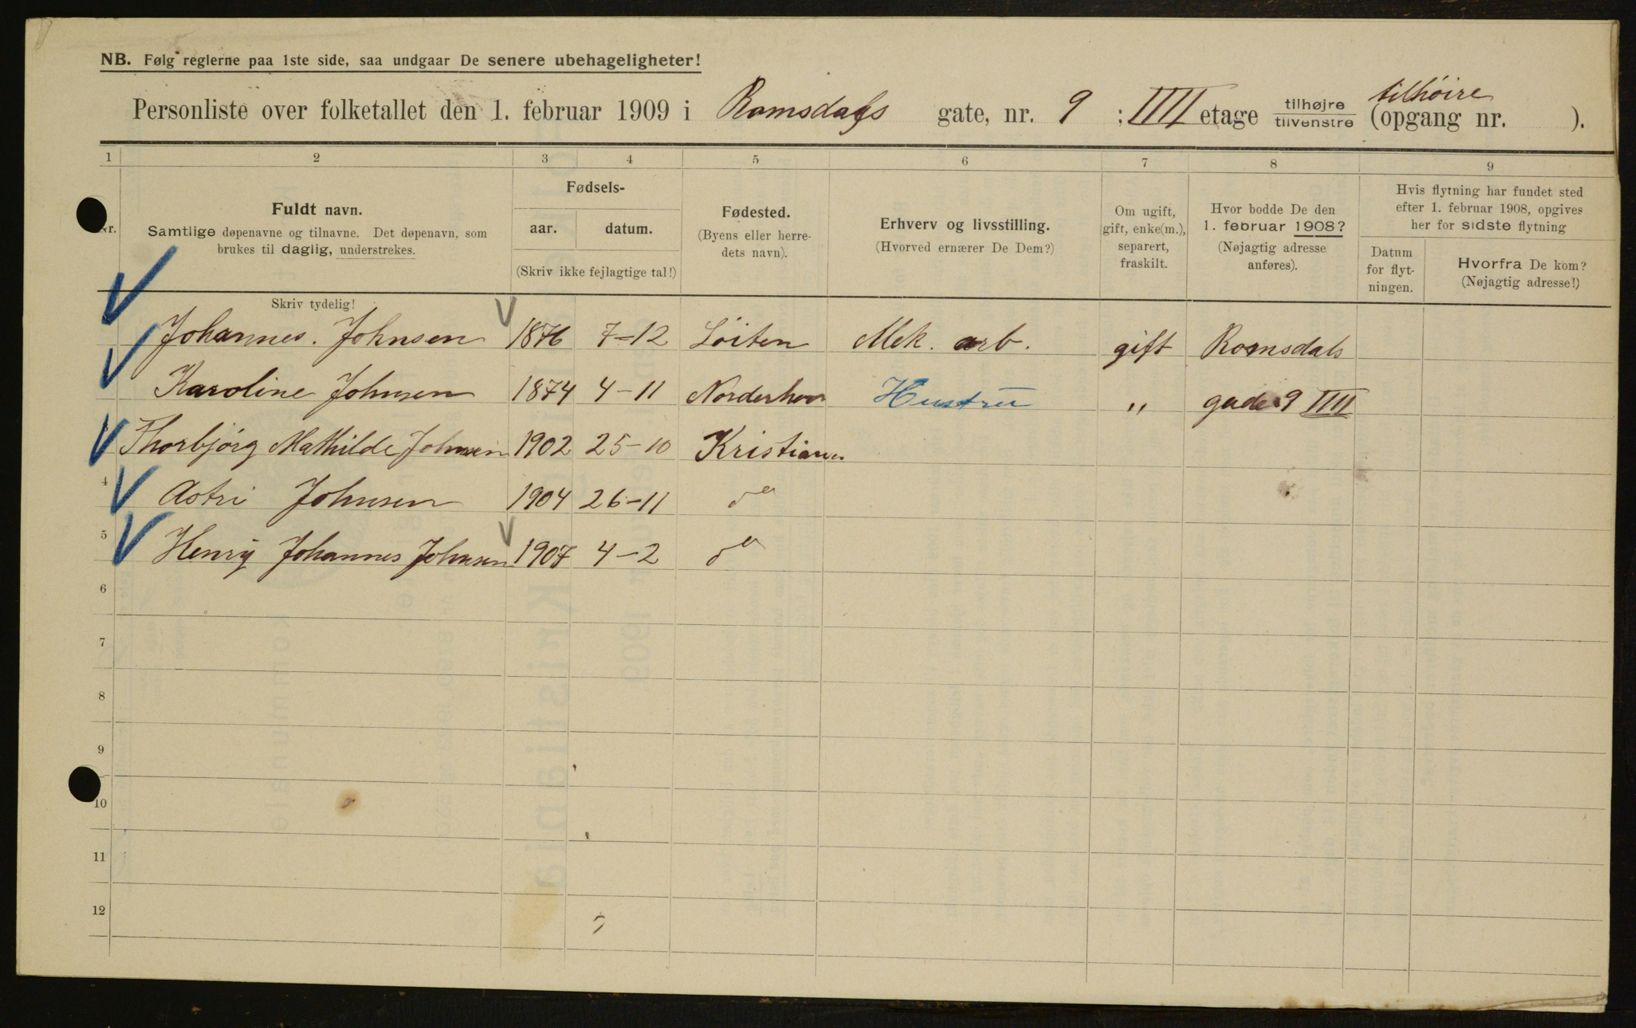 NB. Følg reglerne paa 1ste side, saa undgaar De senere ubehageligheter!
Personliste over folketallet den 1. februar 1909 i Romsdals gate, nr. 9 ; IIII etage tilhøjre tilvenstre (opgang nr. tilhøire ).
1 2 3 4 5 6 7 8 9
Nr.
Fuldt navn.
Samtlige døpenavne og tilnavne. Det døpenavn, som
brukes til daglig, understrekes.
Skriv tydelig!
Fødsels-
aar. datum.
(Skriv ikke fejlagtige tal!)
Fødested.
(Byens eller herre-
dets navn).
Erhverv og livsstilling.
(Hvorved ernærer De Dem?)
Om ugift,
gift, enke(m.),
separert,
fraskilt.
Hvor bodde De den
1. februar 1908?
(Nøjagtig adresse
anføres).
Hvis flytning har fundet sted
efter 1. februar 1908, opgives
her for sidste flytning
Datum
for flyt-
ningen.
Hvorfra De kom?
(Nøjagtig adresse!)
Johannes. Johnsen 1876 7-12 Løiten Mek. arb. gift Romsdals
Karoline Johnsen 1874 4-11 Norderhov Hustru " gade 9 IIII
Thorbjørg Mathilde Johnsen 1902 25-10 Kristiania
4 Astri Johnsen 1904 26-11 do
5 Henry Johannes Johnsen 1907 4-2 do
6
7
8
9
10
11
12